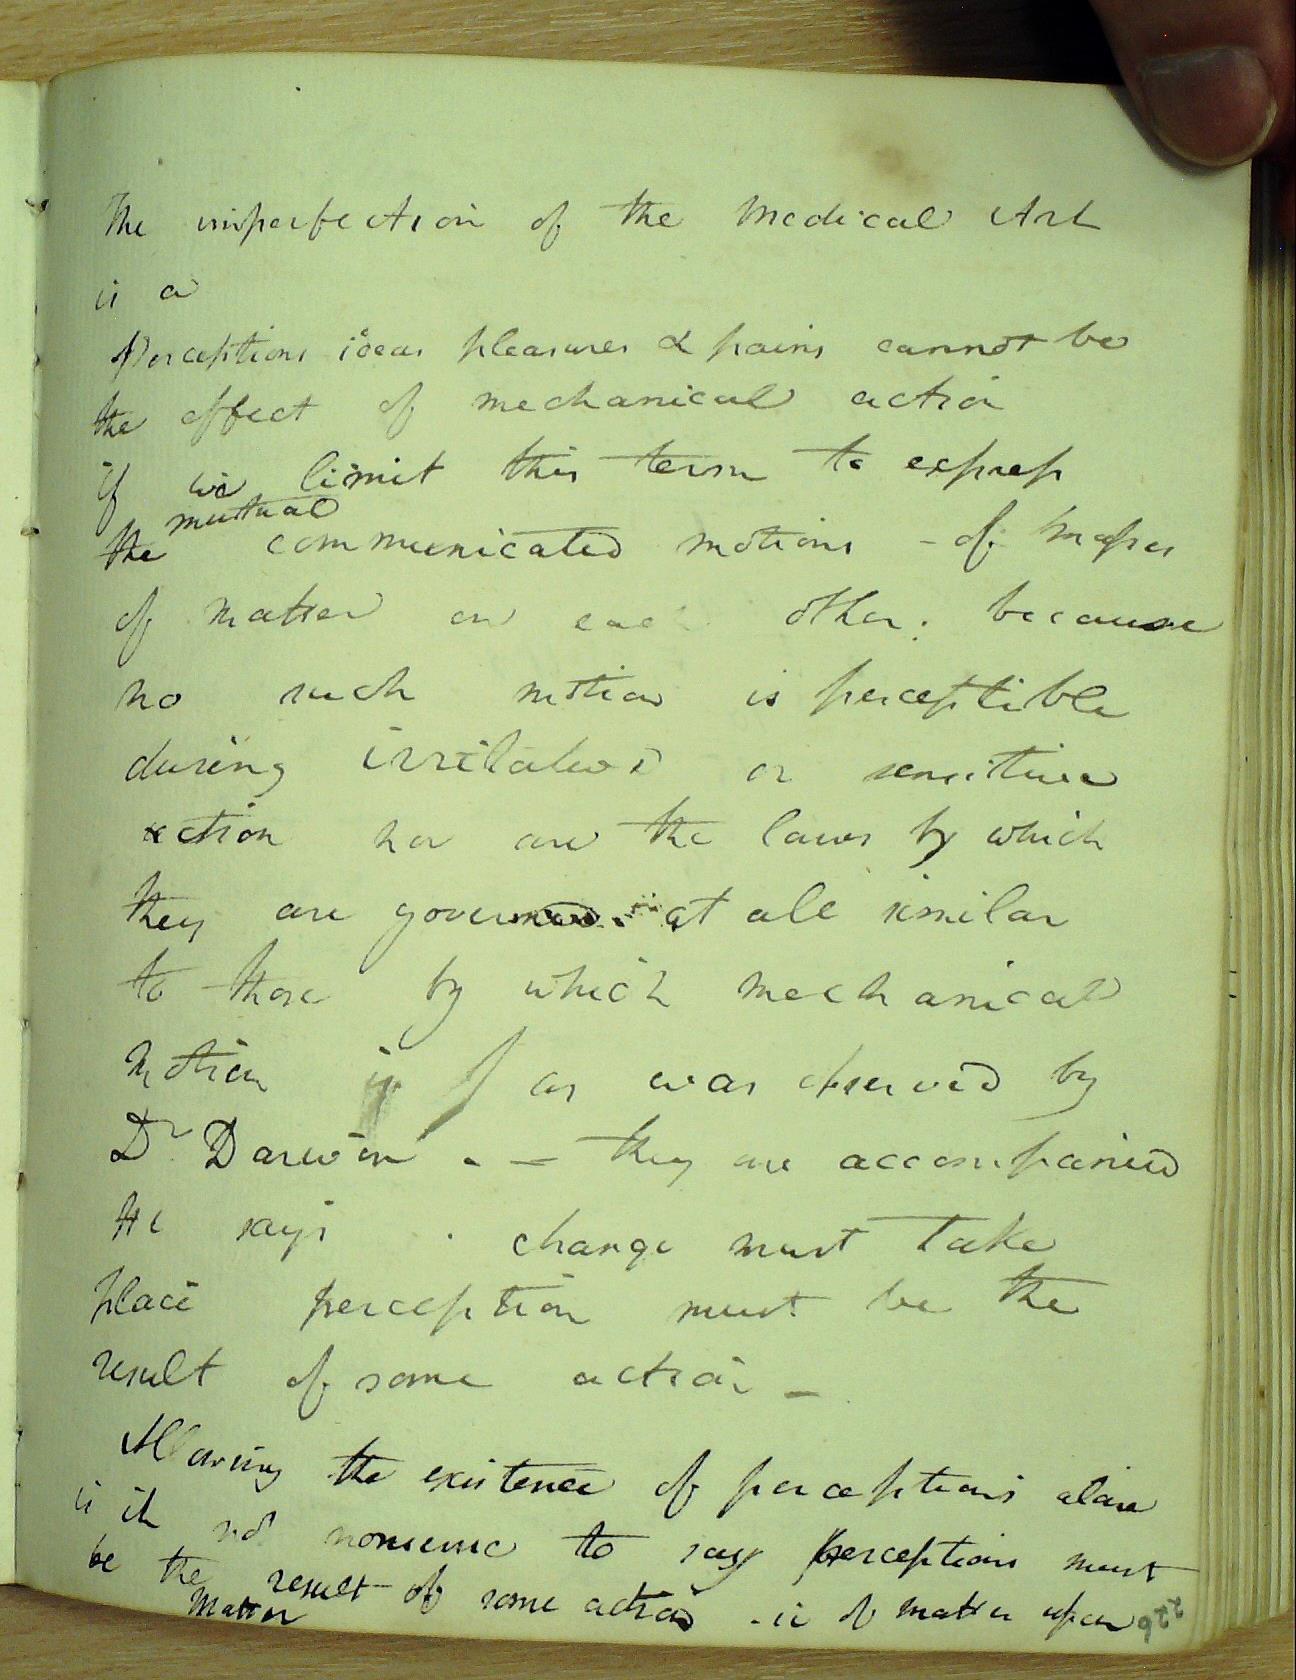 The imperfection of the Medical Art
is a
Perceptions ideas pleasures & pains cannot be
the effect of mechanical action
if we limit this term to express
mutual
the communicated motions - of masses
of matter on each other. because
no such motion is perceptible
during irritative or sensitive
action nor are the laws by which
they are governed. at all similar
to those by which mechanical
motion is as was observed by
Dr Darwin. - they are accompanied
He says . change must take
place perception must be the
result of some action -
Allowing the existence of perceptions alone
is it not nonsense to say perceptions must
be the result of some action - ie of matter upon
matter
226